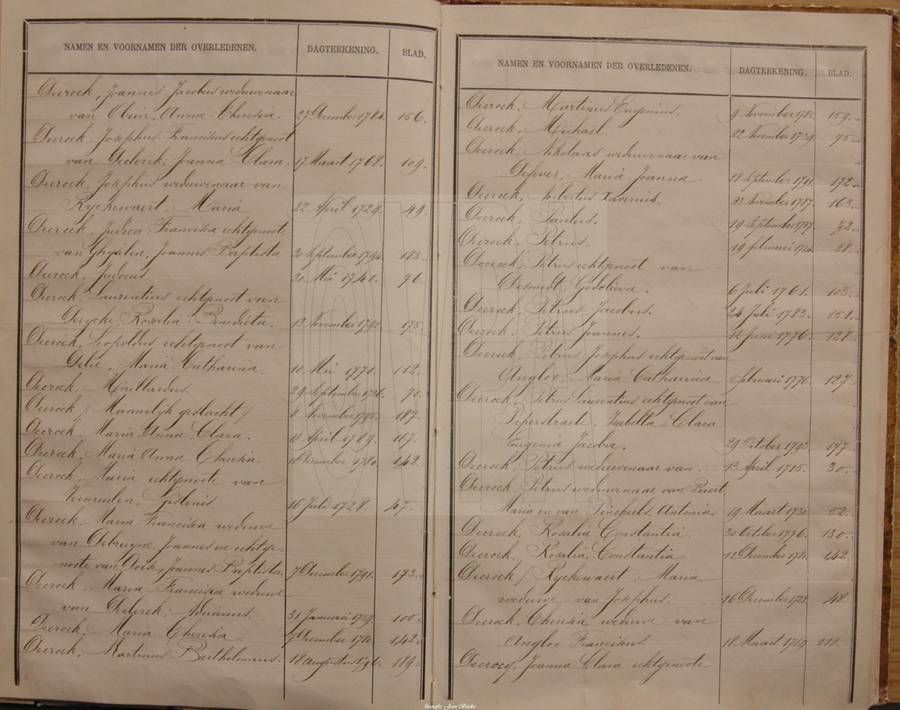 NAMEN EN VOORNAMEN DER OVERLEDENEN. DAGTEEKENING. BLAD.
Deerock, Joannes Jacobus weduwenaar
van Obin, Anna Theresia. 27 December 1784. 156.
Deerock, Josephus Franciscus echtgenoot
van Dederck, Joanna Clara. 17 Maart 1768. 109.
Deerock, Josephus weduwenaar van
Ryckewaert, Maria 22 April 1729. 49.
Deerock, Judoca Francisca echtgenoote
van Joannes Baptista 2 September 1794 182.
Deerock, Judocus. 20 Mei 1740. 76.
Deerock, Laurentius echtgenoot van
Rosalia Benedicta. 13 November 1792 175.
Deerock, Leopoldus echtgenoot van
Maria Catharina. 10 Mei 1770. 112.
Deerock, 29 September 1736. 70.
Deerock / Mannelijk geslacht / 8 November 1795. 187.
Deerock, Maria Anna Clara. April 1769. 107.
Deerock, Maria Anna Theresia. December 1780. 142.
Deerock, Maria echtgenoote van
Vermeulen, 16 Juli 1728. 47.
Deerock, Maria Franciska weduwe
van Debruyne, Joannes en echtge-
noote van Joannes Baptista 7 December 1791. 173.
Deerock, Maria Franciska weduwe
van Dederck, 31 Januari 1759. 100.
Deerock, Maria Theresia December 1780. 142.
Deerock, Martinus Bartholomeus. 18 Augustus 1796. 189.
NAMEN EN VOORNAMEN DER OVERLEDENEN. DAGTEEKENING. BLAD.
Deerock, Martinus Eugenius. 9 November 1785. 159.
Deerock, Michael. 22 November 1739. 75.
Deerock, Nikolaas weduwenaar van
Maria Joanna 18 September 1791. 172.
Deerock, Norbertus Xaverius. 23 November 1787. 163.
Deerock, Paulus. 19 September 1737. 72.
Deerock, Petrus. 19 februari 28.
Deerock, Petrus echtgenoot van
Desmedt, Godelieva. 6 Juli 1761. 103.
Deerock, Petrus Jacobus. 24 Juli 1783. 151.
Deerock, Petrus Joannes. 12 Juni 1776. 128.
Deerock, Petrus Josephus echtgenoot van
Angloo, Maria Catharina februari 1776. 127.
Deerock, Petrus Laurentius echtgenoot van
Peperstraete, Isabella Clara
Eugenia Jacoba. 29 October 1793. 177.
Deerock, Petrus weduwenaar van 13 April 1715. 30.
Deerock, Petrus weduwenaar van
Maria en van Antonia. 19 Maart 1730. 52.
Deerock, Rosalia Constantia. 30 October 1776. 130.
Deerock, Rosalia Constantia 12 December 1780. 142.
Deerock / Ryckewaert, Maria
weduwe van Josephus. 16 December 1728. 48.
Deerock, Theresia weduwe van
Angloo Franciscus 18 Maart 1769. 111.
Deerocq, Joanna Clara echtgenoote